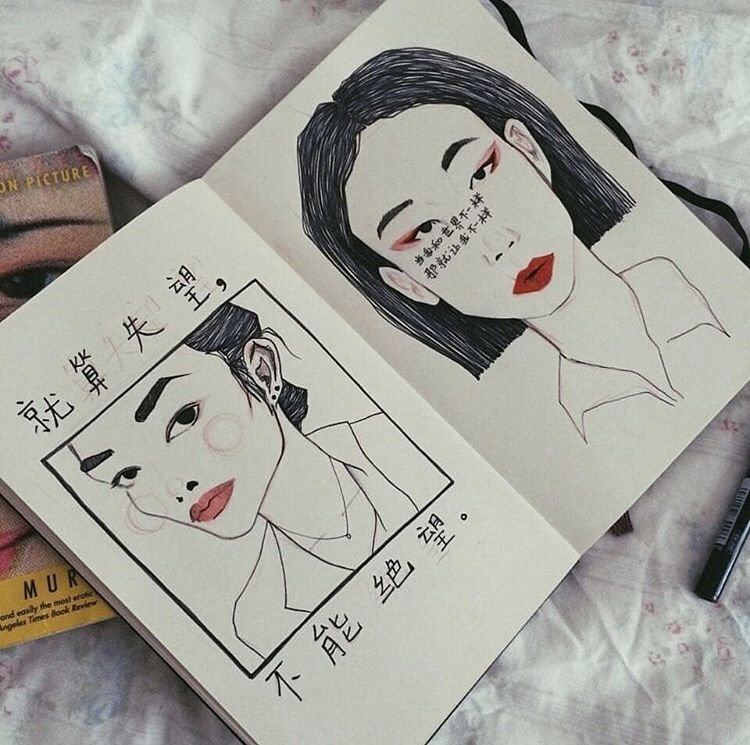 就算失望，
不能绝望。
当我和世界不一样
那就让我不一样
ON PICTURE
MUR
and easily the most erotic
Angeles Times Book Review